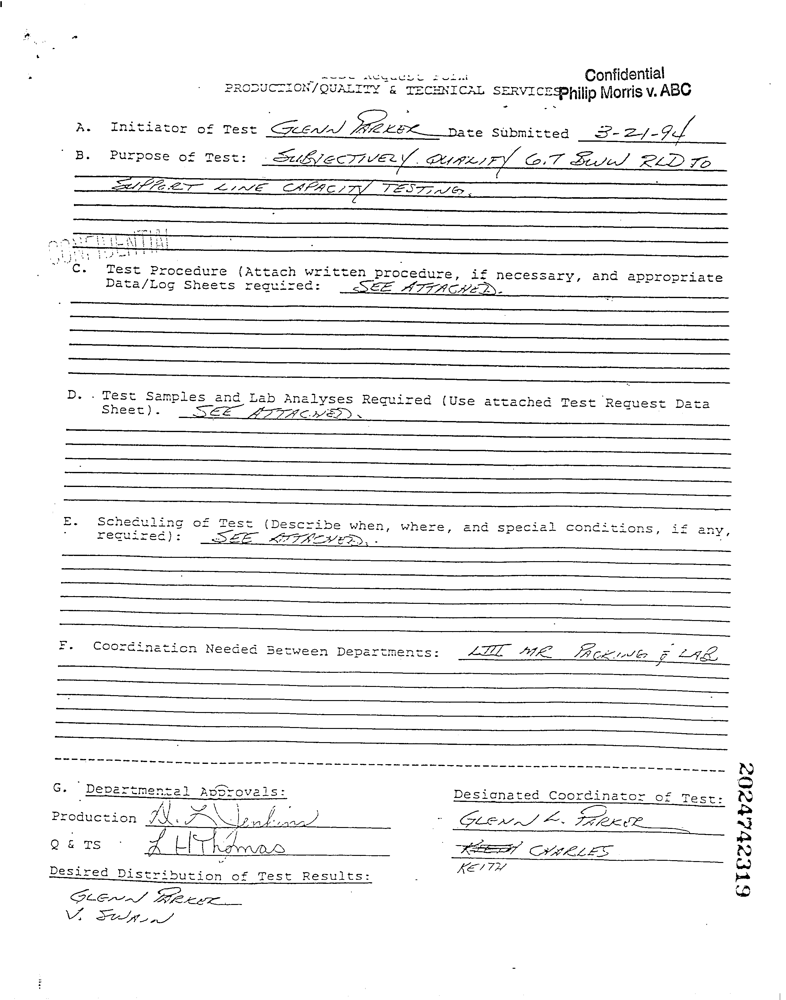 Test Request Form
Confidential
PRODUCTION/QUALITY & TECHNICAL SERVICES
Philip Morris v. ABC
A. Initiator of Test GLENN PARKER Date Submitted 3-21-94
B. Purpose of Test: SUBJECTIVELY QUALIFY 6.7 BWW RLD TO
SUPPORT LINE CAPACITY TESTING.
CONFIDENTIAL
C. Test Procedure (Attach written procedure, if necessary, and appropriate
Data/Log Sheets required: SEE ATTACHED.
D. Test Samples and Lab Analyses Required (Use attached Test Request Data
Sheet). SEE ATTACHED.
E. Scheduling of Test (Describe when, where, and special conditions, if any,
required): SEE ATTACHED.
F. Coordination Needed Between Departments: LIII MR PACKING & LAB
G. Departmental Approvals:
Designated Coordinator of Test:
Production N. L. Jenkins
GLENN L. PARKER
Q & TS L H Thomas
CHARLES
KEITH
Desired Distribution of Test Results:
GLENN PARKER
V. SWAIN
2024742319